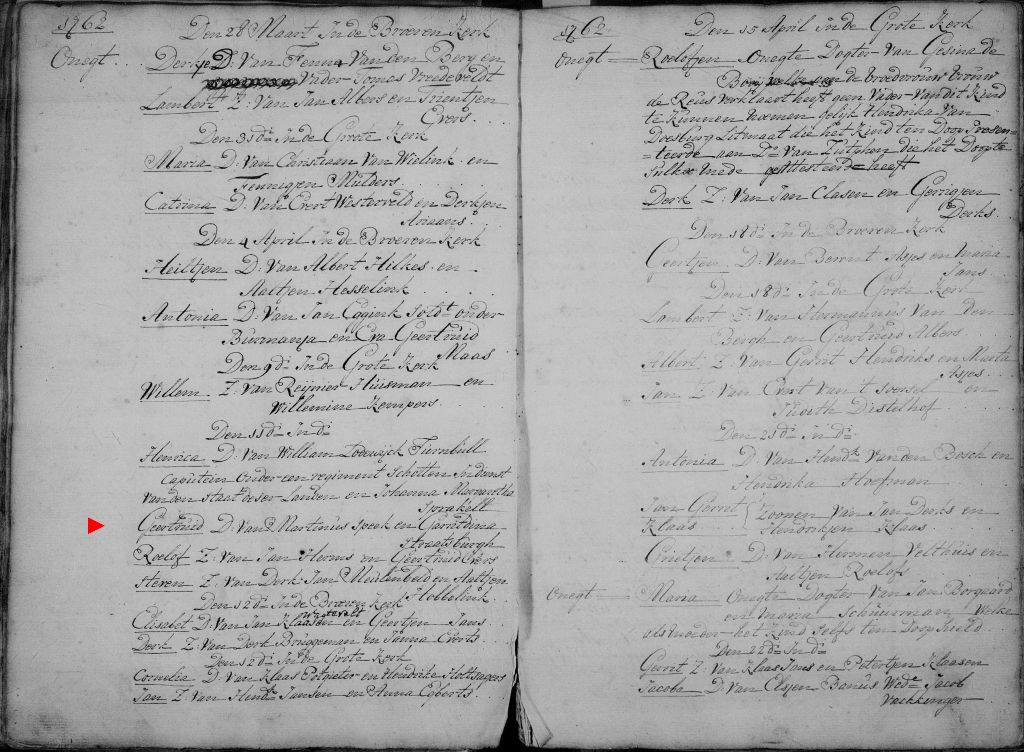 1762
Den 28 Maart In de Broeren Kerk
Onegt
Derkje D. Van Fenna Van den Berg en
Vader Tomas Vredeveldt
Lambert Z: Van Jan Albers en Trientjen
Evers
Den 3 dn In de Groote Kerk
Maria D: Van Christiaan Van Wielink en
Fennigjen Mulders
Catrina D: Van Evert Westerveld en Derkjen
Ariaans
Den 4 April In de Broeren Kerk
Heiltjen D: Van Albert Hilkes en
Aaltjen Hesselink
Antonia D: Van Jan Soldt onder
Burmania en Eva Geertruid
Maas
Den 9 dn In de Grote Kerk
Willem Z: Van Reijnier Huisman en
Willemine Kempers
Den 11 dn In dn
Henrica D: Van William Lodewijck Turnbull
Captitein onder een regiment Schotten In dienst
van den Staat deser Landen en Johanna Margarotha
Sprakell
Geertruid D: Van Martinus Speek en Gerritdina
Straatsburgh
Roelof Z: Van Jan Herms en Geertruid Evers
Herm Z: Van Derk Jan Meulenbeld en Aaltjen
Hobbelink
Den 12 dn In de Broeren Kerk
Elisabet D: Van Jan Klaassen en Geertjen Jans
Derk Z: Van Derk Bruggeman en Janna Everts
Den 12 dn In de Grote Kerk
Cornelia D: Van Klaas Potgieter en Hendrika Holtjagers
Jan Z: Van Hendk Jansen en Anna Egberts
1762
Den 15 April in de Grote Kerk
Onegt
Roelofjen Onegte Dogter Van Gesina de
de broederouw vrouw
de Reus verklaart heeft geen Vader van dit Kind
te kunnen noemen gelijk Hendrika Van
Doesburg Litmaat die het Kind ten Doop Presen=
=teerde aan Do Van Zutphen die het Doopte
Sulkx mede geattesteerd heeft
Derk Z: Van Jan Clasen en Gerrigjen
Derks
Den 18 dn In de Broeren Kerk
Geertjen D: Van Berent Asjes en Maria
Jans
Den 18 dn In de Grote Kerk
Lambert Z: Van Hermannus Van den
Bergh en Geertruid Albers
Albert Z: Van Gerrit Hendriks en Marta
Asjes
Jan Z: Van Evert Van t Soersel en
Judith Distelhof
Den 21 dn In dn
Antonia D: Van Hendk Van den Bosch en
Hendrika Hoefman
Jan Gerrit
Klaas
Zoonen Van Jan Derks en
Hendrikjen Klaas
Grietjen D: Van Hermen Velthuis en
Aaltjen Roelofs
Onegt
Maria Onegte Dogter Van Jan Borgaard
en Maria Schuurman Welke
als moeder het Kind selfs ten Doop hield
Den 22 dn In dn
Gerrit Z: Van Klaas Jans en Petertjen Klaasen
Jacoba D: Van Elsjen Banus Wede Jacob
Vackkinger